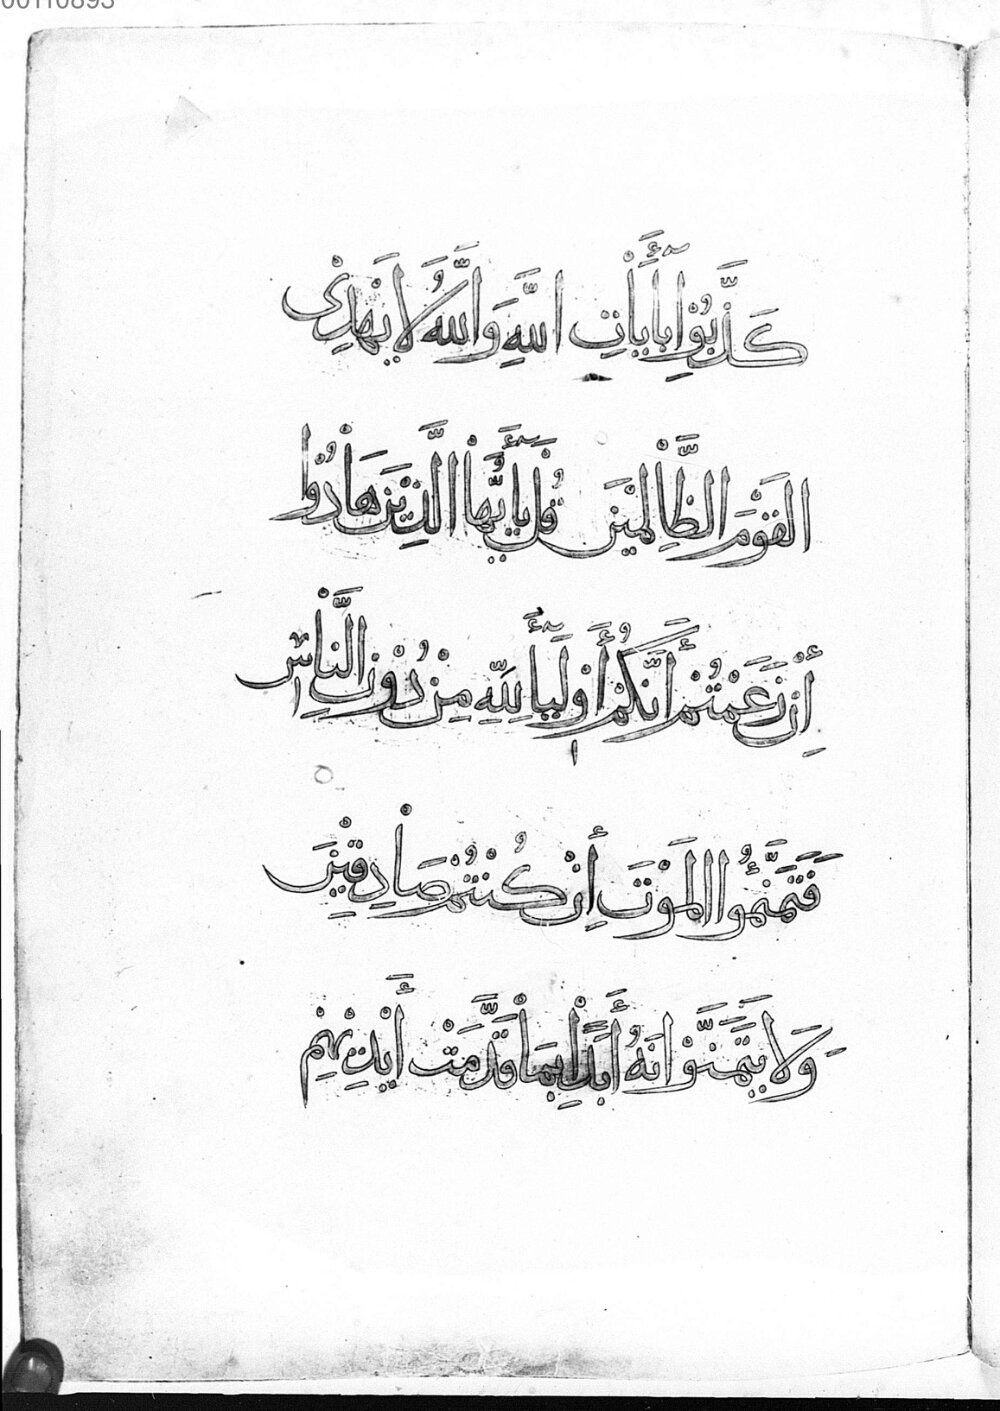 00110893
كَذَّبُوْا بِأٰيَاتِ اللَّهِ وَاللَّهُ لَا يَهْدِىْ
الْقَوْمَ الظَّالِمِيْنَ قُلْ يَاأَيُّهَا الَّذِيْنَ هَادُوْا
إِنْ زَعَمْتُمْ أَنَّكُمْ أَوْلِيَاءُ لِلَّهِ مِنْ دُوْنِ النَّاسِ
فَتَمَنَّوُا الْمَوْتَ إِنْ كُنْتُمْ صَادِقِيْنَ
وَلَا يَتَمَنَّوْنَهُ أَبَدًا بِمَا قَدَّمَتْ أَيْدِيْهِمْ